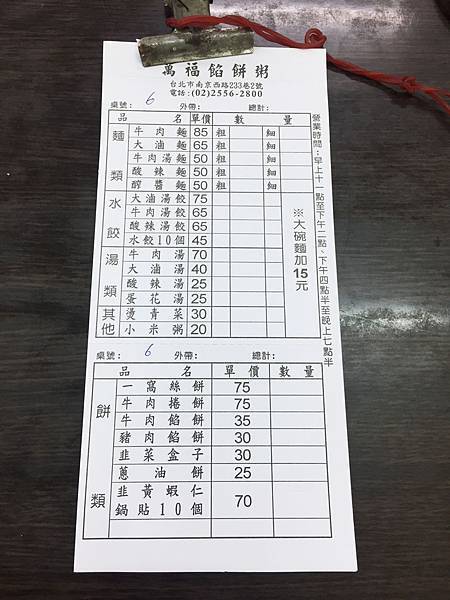 萬福餡餅粥
台北市南京西路233巷2號
電話:(02)2556-2800
桌號: 6 外帶: 總計:
品名 單價 數量
麵類
牛肉麵 85 粗 細
大滷麵 65 粗 細
牛肉湯麵 50 粗 細
酸辣麵 50 粗 細
醡醬麵 50 粗 細
水餃
大滷湯餃 75
牛肉湯餃 65
酸辣湯餃 65
水餃10個 45
湯類
牛肉湯 70
大滷湯 40
酸辣湯 25
蛋花湯 25
其他
燙青菜 30
小米粥 20
※大碗麵加15元
營業時間:早上十一點至下午二點、下午四點半至晚上七點半
桌號: 6 外帶: 總計:
品名 單價 數量
餅類
一窩絲餅 75
牛肉捲餅 75
牛肉餡餅 35
豬肉餡餅 30
韭菜盒子 30
蔥油餅 25
韭黃蝦仁
鍋貼10個 70